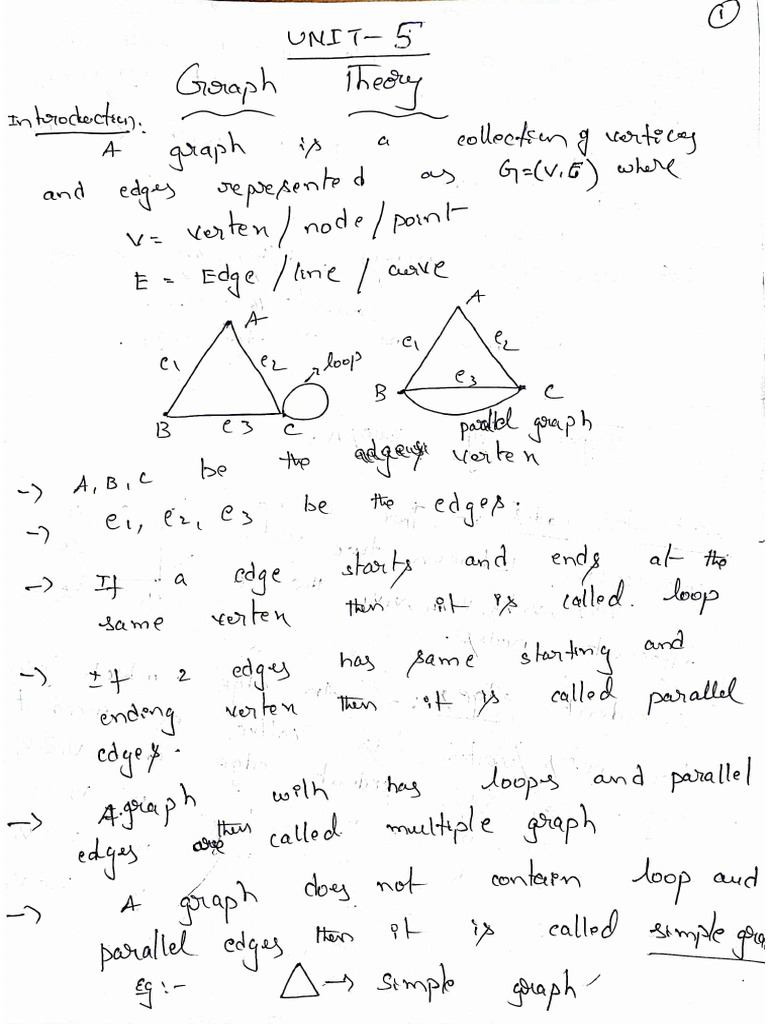 1
UNIT-5
Graph Theory
Introduction:
A graph is a collection of vertices
and edges represented as G=(V,E) where
V= vertex/node/point
E = Edge/line/curve
A
e1 e2 loop
B e3 C
A
e1 e2
B e3 C
parallel graph
-> A, B, C be the vertex
-> e1, e2, e3 be the edges.
-> If a edge starts and ends at the
same vertex then it is called loop
-> If 2 edges has same starting and
ending vertex then it is called parallel
edges.
-> A graph with has loops and parallel
edges then called multiple graph
-> A graph does not contain loop and
parallel edges then it is called simple gra
Eg:- -> simple graph